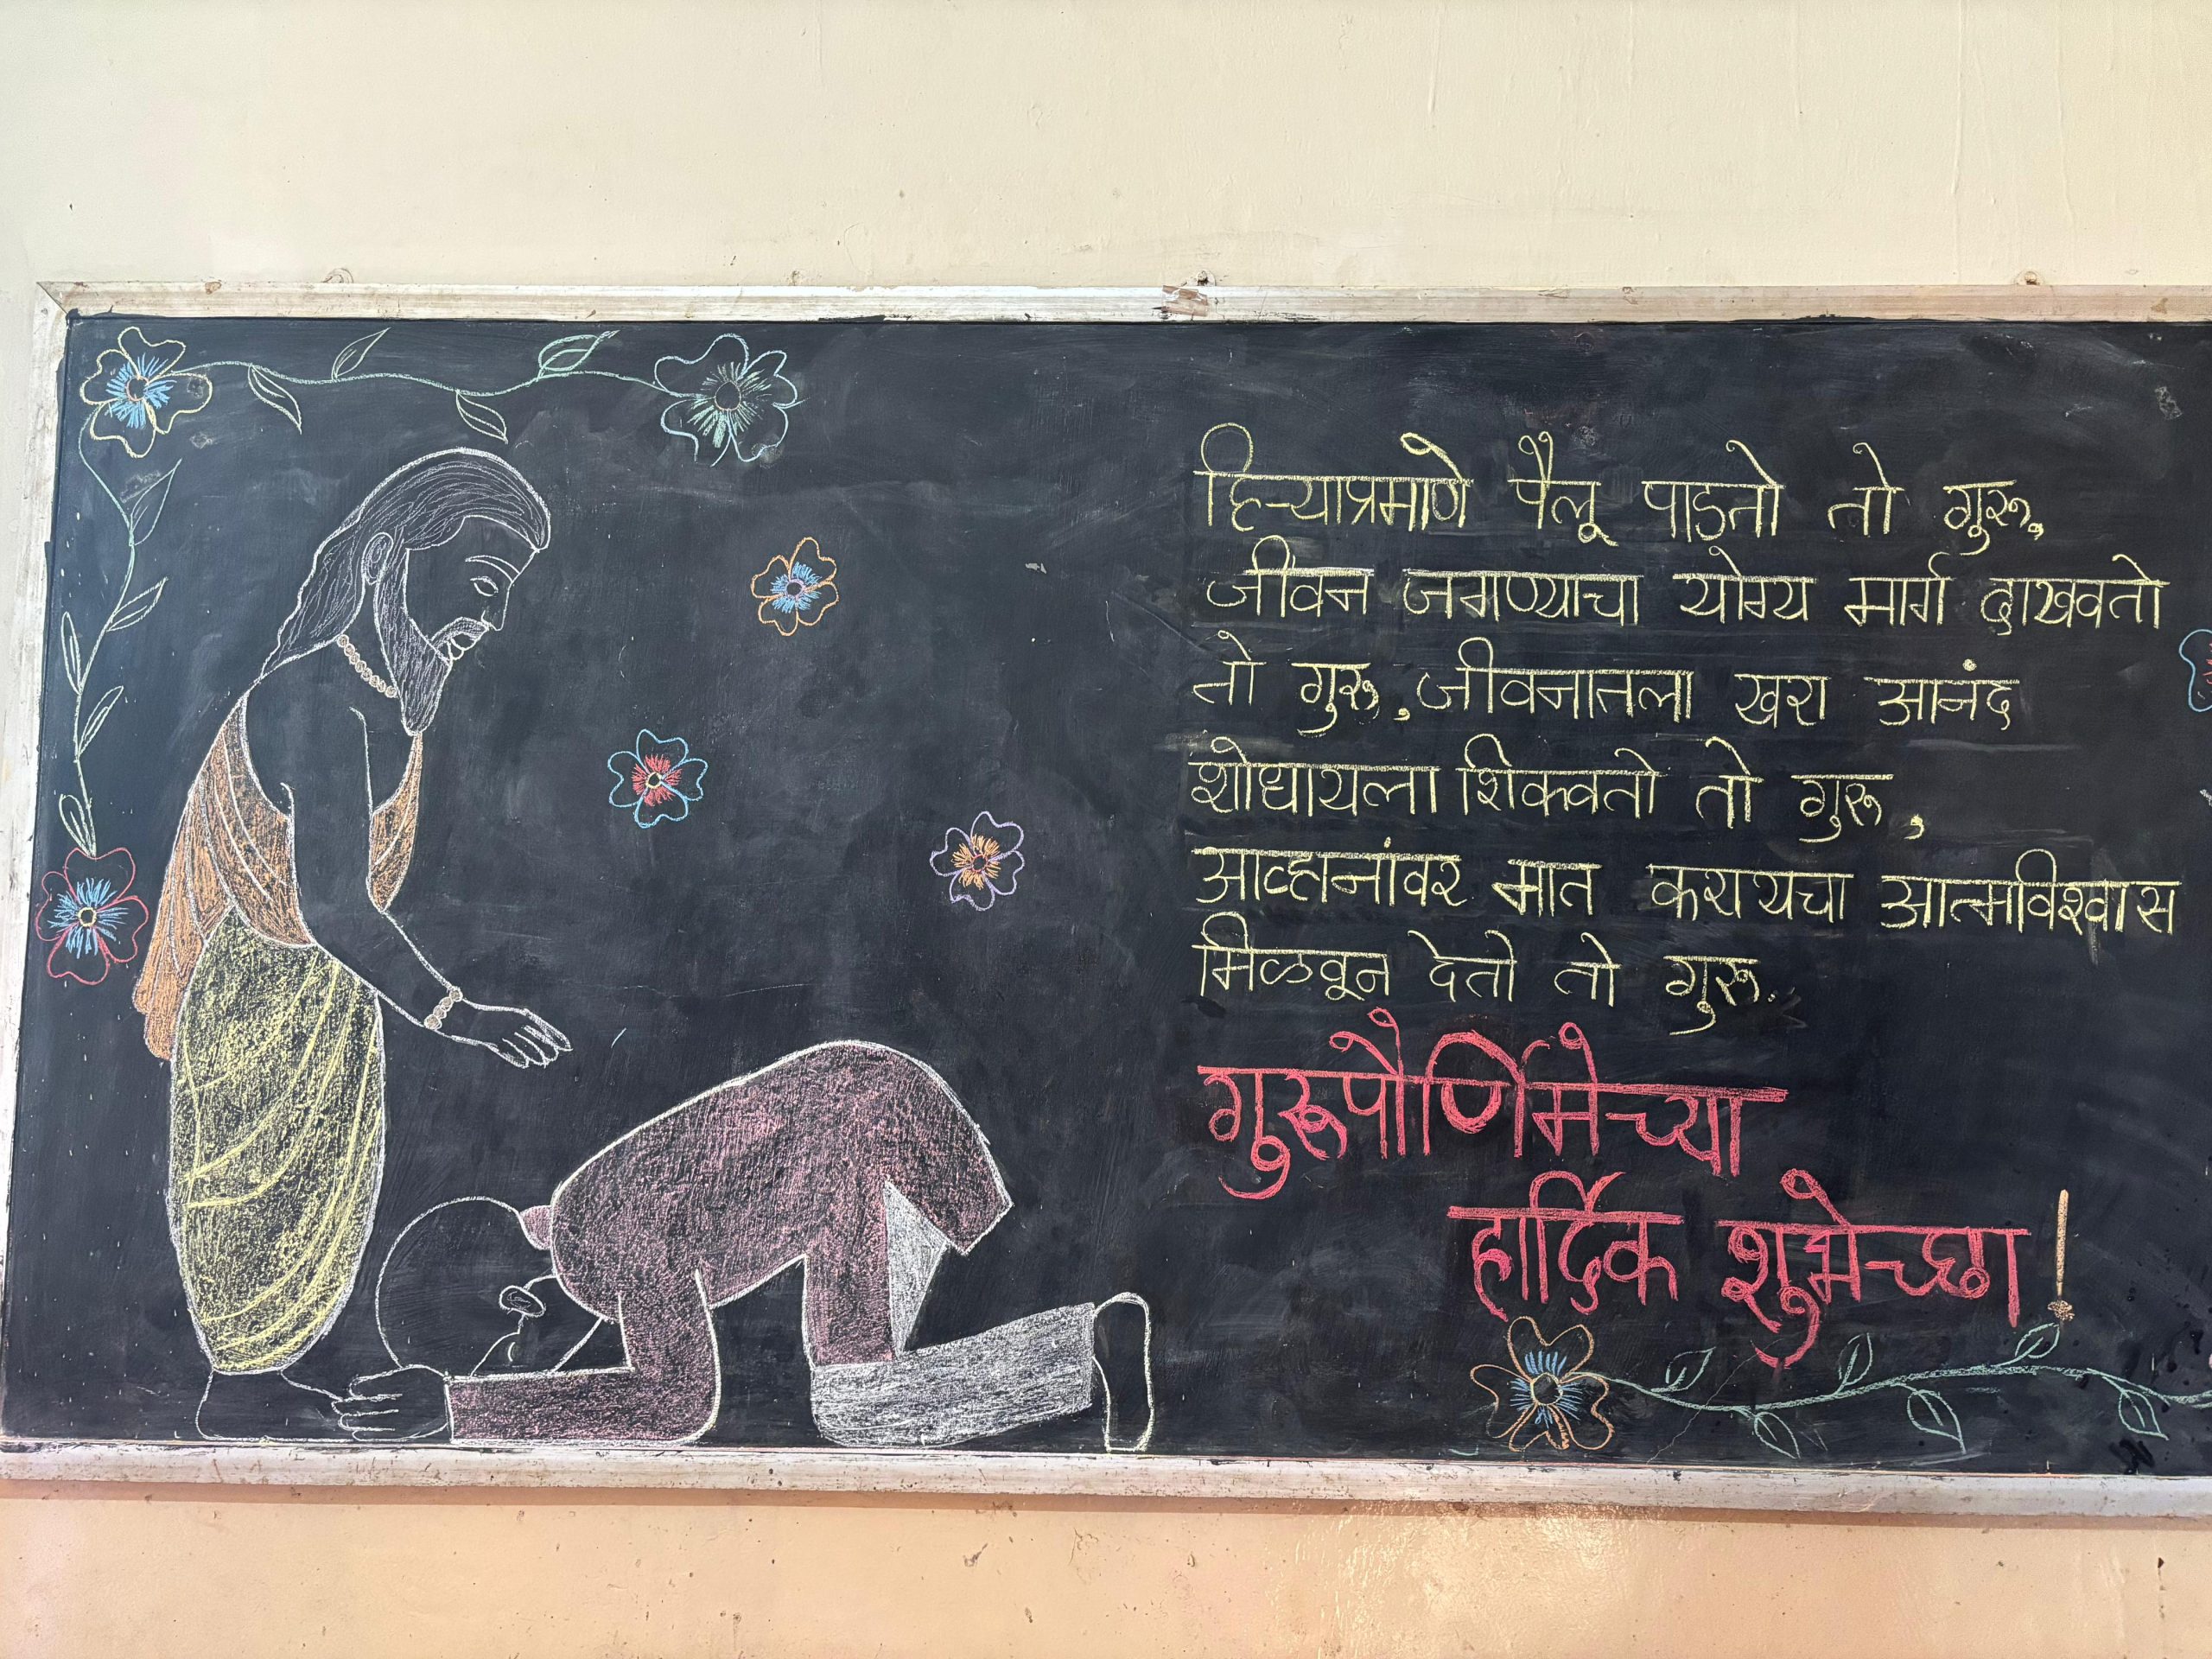 हिऱ्याप्रमाणे पैलू पाडतो तो गुरू,
जीवन जगण्याचा योग्य मार्ग दाखवतो
तो गुरू, जीवनातला खरा आनंद
शोधायला शिकवतो तो गुरू,
आव्हानांवर मात करायचा आत्मविश्वास
मिळवून देतो तो गुरू.
गुरूपौर्णिमेच्या
हार्दिक शुभेच्छा!